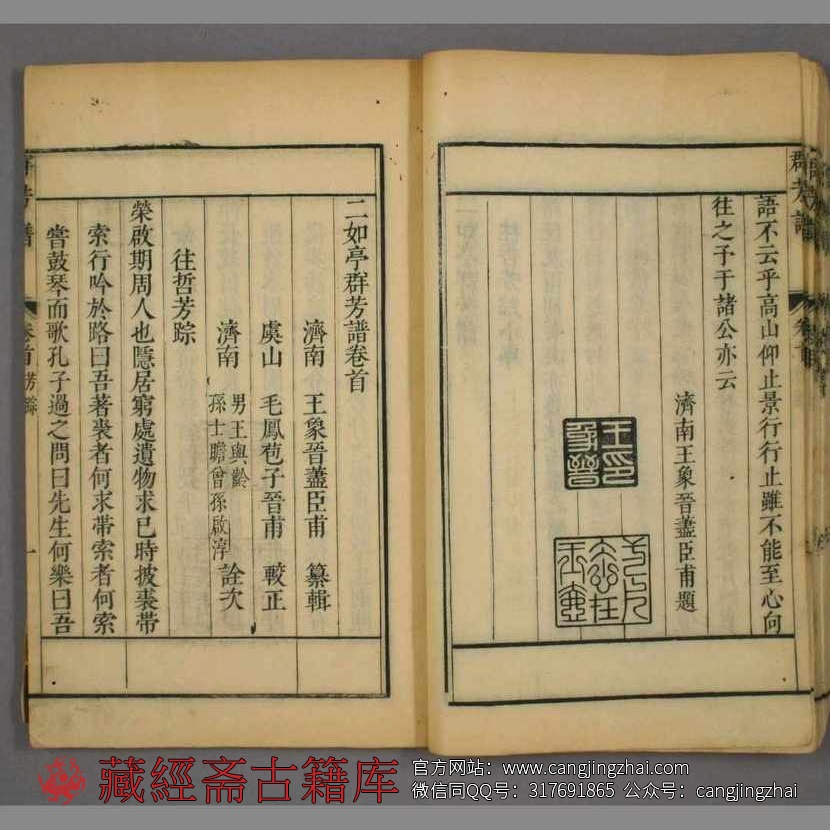 語不云乎高山仰止景行行止雖不能至心向
往之予于諸公亦云
濟南王象晉藎臣甫題
王象晉印
群芳譜
卷首
二如亭群芳譜卷首
濟南 王象晉藎臣甫 纂輯
虞山 毛鳳苞子晉甫 較正
濟南 男王與齡 孫士瞻曾孫啟淳 詮次
往哲芳踪
榮啟期周人也隱居窮處遺物求已時披裘帶
索行吟於路曰吾著裘者何求帶索者何索
嘗鼓琴而歌孔子過之問曰先生何樂曰吾
群芳譜
卷首 芳踪
一
藏經斋古籍库
官方网站：www.cangjingzhai.com
微信同QQ号：317691865 公众号：cangjingzhai